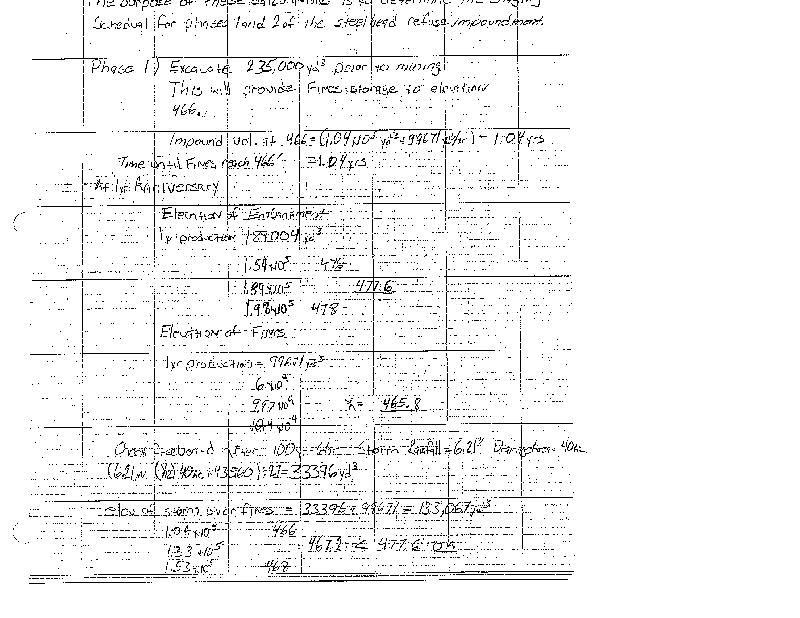 The purpose of these calculations is to determine the staging
Schedual for phases 1 and 2 of the steelhead refuse impoundment.
Phase 1) Excavate 235,000 yd³ prior to mining
This will provide Fines storage to elevation
466.
Impound vol. at 466 = (1.04x10⁵ yd³ ÷ 99671 yd³/yr) = 1.04 yrs
Time until Fines reach 466 = 1.04 yrs
At 1yr Anniversary
Elevation of Embankment
1yr production 189,004 yd³
1.54x10⁵ 476
1.89x10⁵ 477.6
1.98x10⁵ 478
Elevation of Fines
1yr production = 99671 yd³
6x10⁴
9.97x10⁴ X = 465.8
10.4x10⁴
Check Freeboard after 100yr - 6hr Storm Rainfall = 6.21" Drainage Area = 40ac
(6.21 in 40ac 43560) ÷ 27 = 33396 yd³
Elev of storm over fines = 33396 + 99671 = 133,067 yd³
1.04x10⁵ 466
1.33x10⁵ 467.2 < 477.6 OK
1.53x10⁵ 468